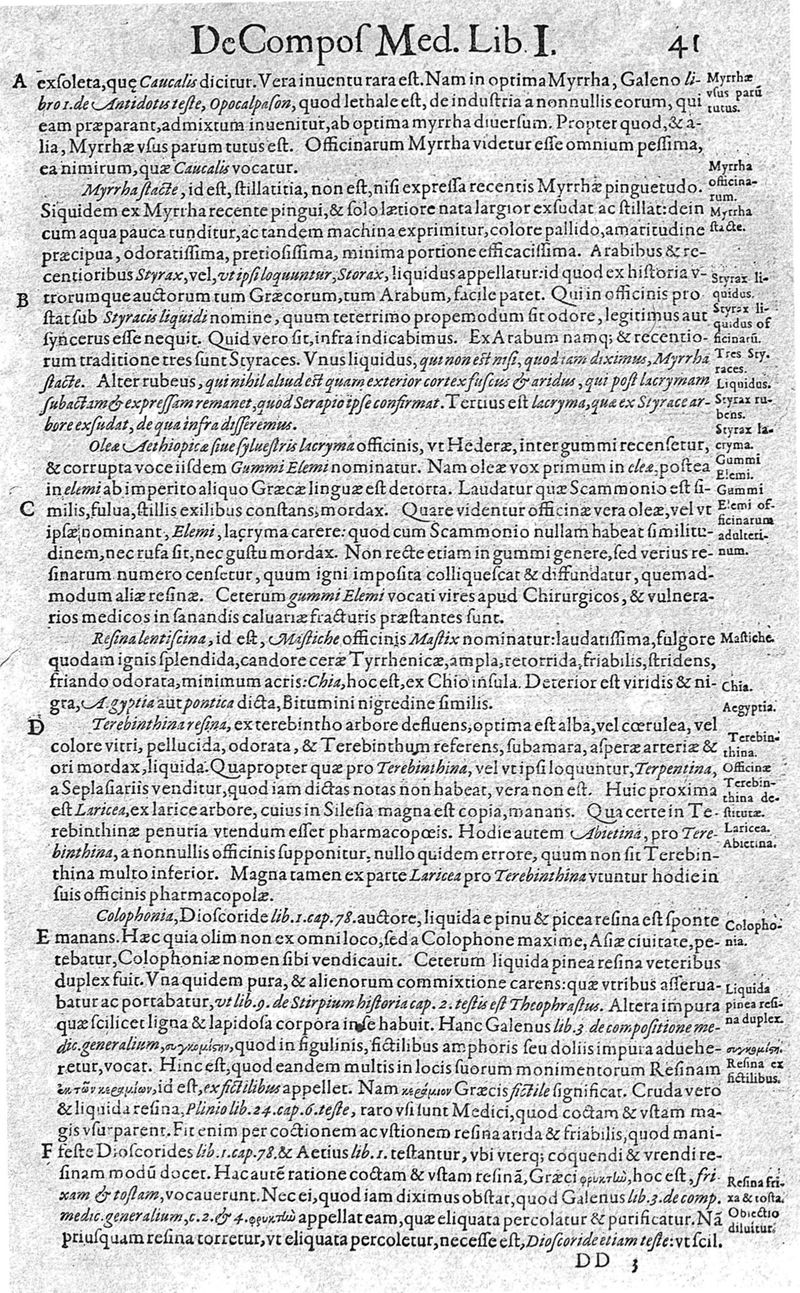 De Compos Med. Lib. I. 41
A exsoleta, quę Caucalis dicitur. Vera inuentu rara est. Nam in optima Myrrha, Galeno li-
bro 1. de Antidotis teste, Opocalpason, quod lethale est, de industria a nonnullis eorum, qui
eam præparant, admixtum inuenitur, ab optima myrrha diuersum. Propter quod, & a-
lia, Myrrhæ vsus parum tutus est. Officinarum Myrrha videtur esse omnium pessima,
ea nimirum, quæ Caucalis vocatur.
Myrrhæ
vsus parū
tutus.
Myrrha
officina-
rum.
Myrrha stacte, id est, stillatitia, non est, nisi expressa recentis Myrrhæ pinguetudo.
Siquidem ex Myrrha recente pingui, & solo lætiore nata largior exsudat ac stillat: dein
cum aqua pauca tunditur, ac tandem machina exprimitur, colore pallido, amaritudine
præcipua, odoratissima, pretiosissima, minima portione efficacissima. Arabibus & re-
centioribus Styrax, vel, vt ipsi loquuntur, Storax, liquidus appellatur: id quod ex historia v-
B trorumque auctorum tum Græcorum, tum Arabum, facile patet. Qui in officinis pro
stat sub Styracis liquidi nomine, quum teterrimo propemodum sit odore, legitimus aut
syncerus esse nequit. Quid vero sit, infra indicabimus. Ex Arabum namq; & recentio-
rum traditione tres sunt Styraces. Vnus liquidus, qui non est nisi, quod iam diximus, Myrrha
stacte. Alter rubeus, qui nihil aliud est quam exterior cortex fuscus & aridus, qui post lacrymam
subactam & expressam remanet, quod Serapio ipse confirmat. Tertius est lacryma, quæ ex Styrace ar-
bore exsudat, de qua infra disseremus.
Myrrha
stacte.
Styrax li-
quidus.
Styrax li-
quidus of
ficinarū.
Tres Sty-
races.
Liquidus.
Styrax ru-
bens.
Styrax la-
cryma.
Oleæ Aethiopicæ siue syluestris lacryma officinis, vt Hederæ, inter gummi recensetur,
& corrupta voce iisdem Gummi Elemi nominatur. Nam oleæ vox primum in elea, postea
in elemi ab imperito aliquo Græcæ linguæ est detorta. Laudatur quæ Scammonio est si-
C milis, fulua, stillis exilibus constans, mordax. Quare videntur officinæ vera oleæ, vel vt
ipsæ nominant, Elemi, lacryma carere: quod cum Scammonio nullam habeat similitu-
dinem, nec rufa sit, nec gustu mordax. Non recte etiam in gummi genere, sed verius re-
sinarum numero censetur, quum igni imposita colliquescat & diffundatur, quemad-
modum aliæ resinæ. Ceterum gummi Elemi vocati vires apud Chirurgicos, & vulnera-
rios medicos in sanandis caluariæ fracturis præstantes sunt.
Gummi
Elemi.
Gummi
Elemi of-
ficinarum
adulteri-
num.
Resina lentiscina, id est, Mastiche officinis Mastix nominatur: laudatissima, fulgore
quodam ignis splendida, candore ceræ Tyrrhenicæ, ampla, retorrida, friabilis, stridens,
friando odorata, minimum acris: Chia, hoc est, ex Chio insula. Deterior est viridis & ni-
gra, Ægyptia aut pontica dicta, Bitumini nigredine similis.
Mastiche.
Chia.
Aegyptia.
D Terebinthina resina, ex terebintho arbore defluens, optima est alba, vel cœrulea, vel
colore vitri, pellucida, odorata, & Terebinthum referens, subamara, asperæ arteriæ &
ori mordax, liquida. Quapropter quæ pro Terebinthina, vel vt ipsi loquuntur, Terpentina,
a Seplasiariis venditur, quod iam dictas notas non habeat, vera non est. Huic proxima
est Laricea, ex larice arbore, cuius in Silesia magna est copia, manans. Qua certe in Te-
rebinthinæ penuria vtendum esset pharmacopœis. Hodie autem Abietina, pro Tere-
binthina, a nonnullis officinis supponitur, nullo quidem errore, quum non sit Terebin-
thina multo inferior. Magna tamen ex parte Laricea pro Terebinthina vtuntur hodie in
suis officinis pharmacopolæ.
Terebin-
thina.
Officinæ
Terebin-
thina de-
stitutæ.
Laricea.
Abietina.
Colophonia, Dioscoride lib. 1. cap. 78. auctore, liquida e pinu & picea resina est sponte
E manans. Hæc quia olim non ex omni loco, sed a Colophone maxime, Asiæ ciuitate, pe-
tebatur, Colophoniæ nomen sibi vendicauit. Ceterum liquida pinea resina veteribus
duplex fuit. Vna quidem pura, & alienorum commixtione carens: quæ vtribus asserua-
batur ac portabatur, vt lib. 9. de Stirpium historia cap. 2. testis est Theophrastus. Altera impura
quæ scilicet ligna & lapidosa corpora in se habuit. Hanc Galenus lib. 3 de compositione me-
dic. generalium, συγκομίστην, quod in figulinis, fictilibus amphoris seu doliis impura aduehe-
retur, vocat. Hinc est, quod eandem multis in locis suorum monimentorum Resinam
ἐκ τῶν κεραμίων, id est, ex fictilibus appellet. Nam κεράμιον Græcis fictile significat. Cruda vero
& liquida resina, Plinio lib. 24. cap. 6. teste, raro vsi sunt Medici, quod coctam & vstam ma-
gis vsurparent. Fit enim per coctionem ac vstionem resina arida & friabilis, quod mani-
F feste Dioscorides lib. 1. cap. 78. & Aetius lib. 1. testantur, vbi vterq; coquendi & vrendi re-
sinam modū docet. Hac autē ratione coctam & vstam resinā, Græci φρυκτὼ, hoc est, fri-
xam & tostam, vocauerunt. Nec ei, quod iam diximus obstat, quod Galenus lib. 3. de comp.
medic. generalium, c. 2. & 4. φρυκτὼ appellat eam, quæ eliquata percolatur & purificatur. Nā
priusquam resina torretur, vt eliquata percoletur, necesse est, Dioscoride etiam teste: vt scil.
Colopho-
nia.
Liquida
pinea resi-
na duplex.
Resina ex
fictilibus.
Resina fri-
xa & tosta.
Obiectio
diluitur.
DD 3